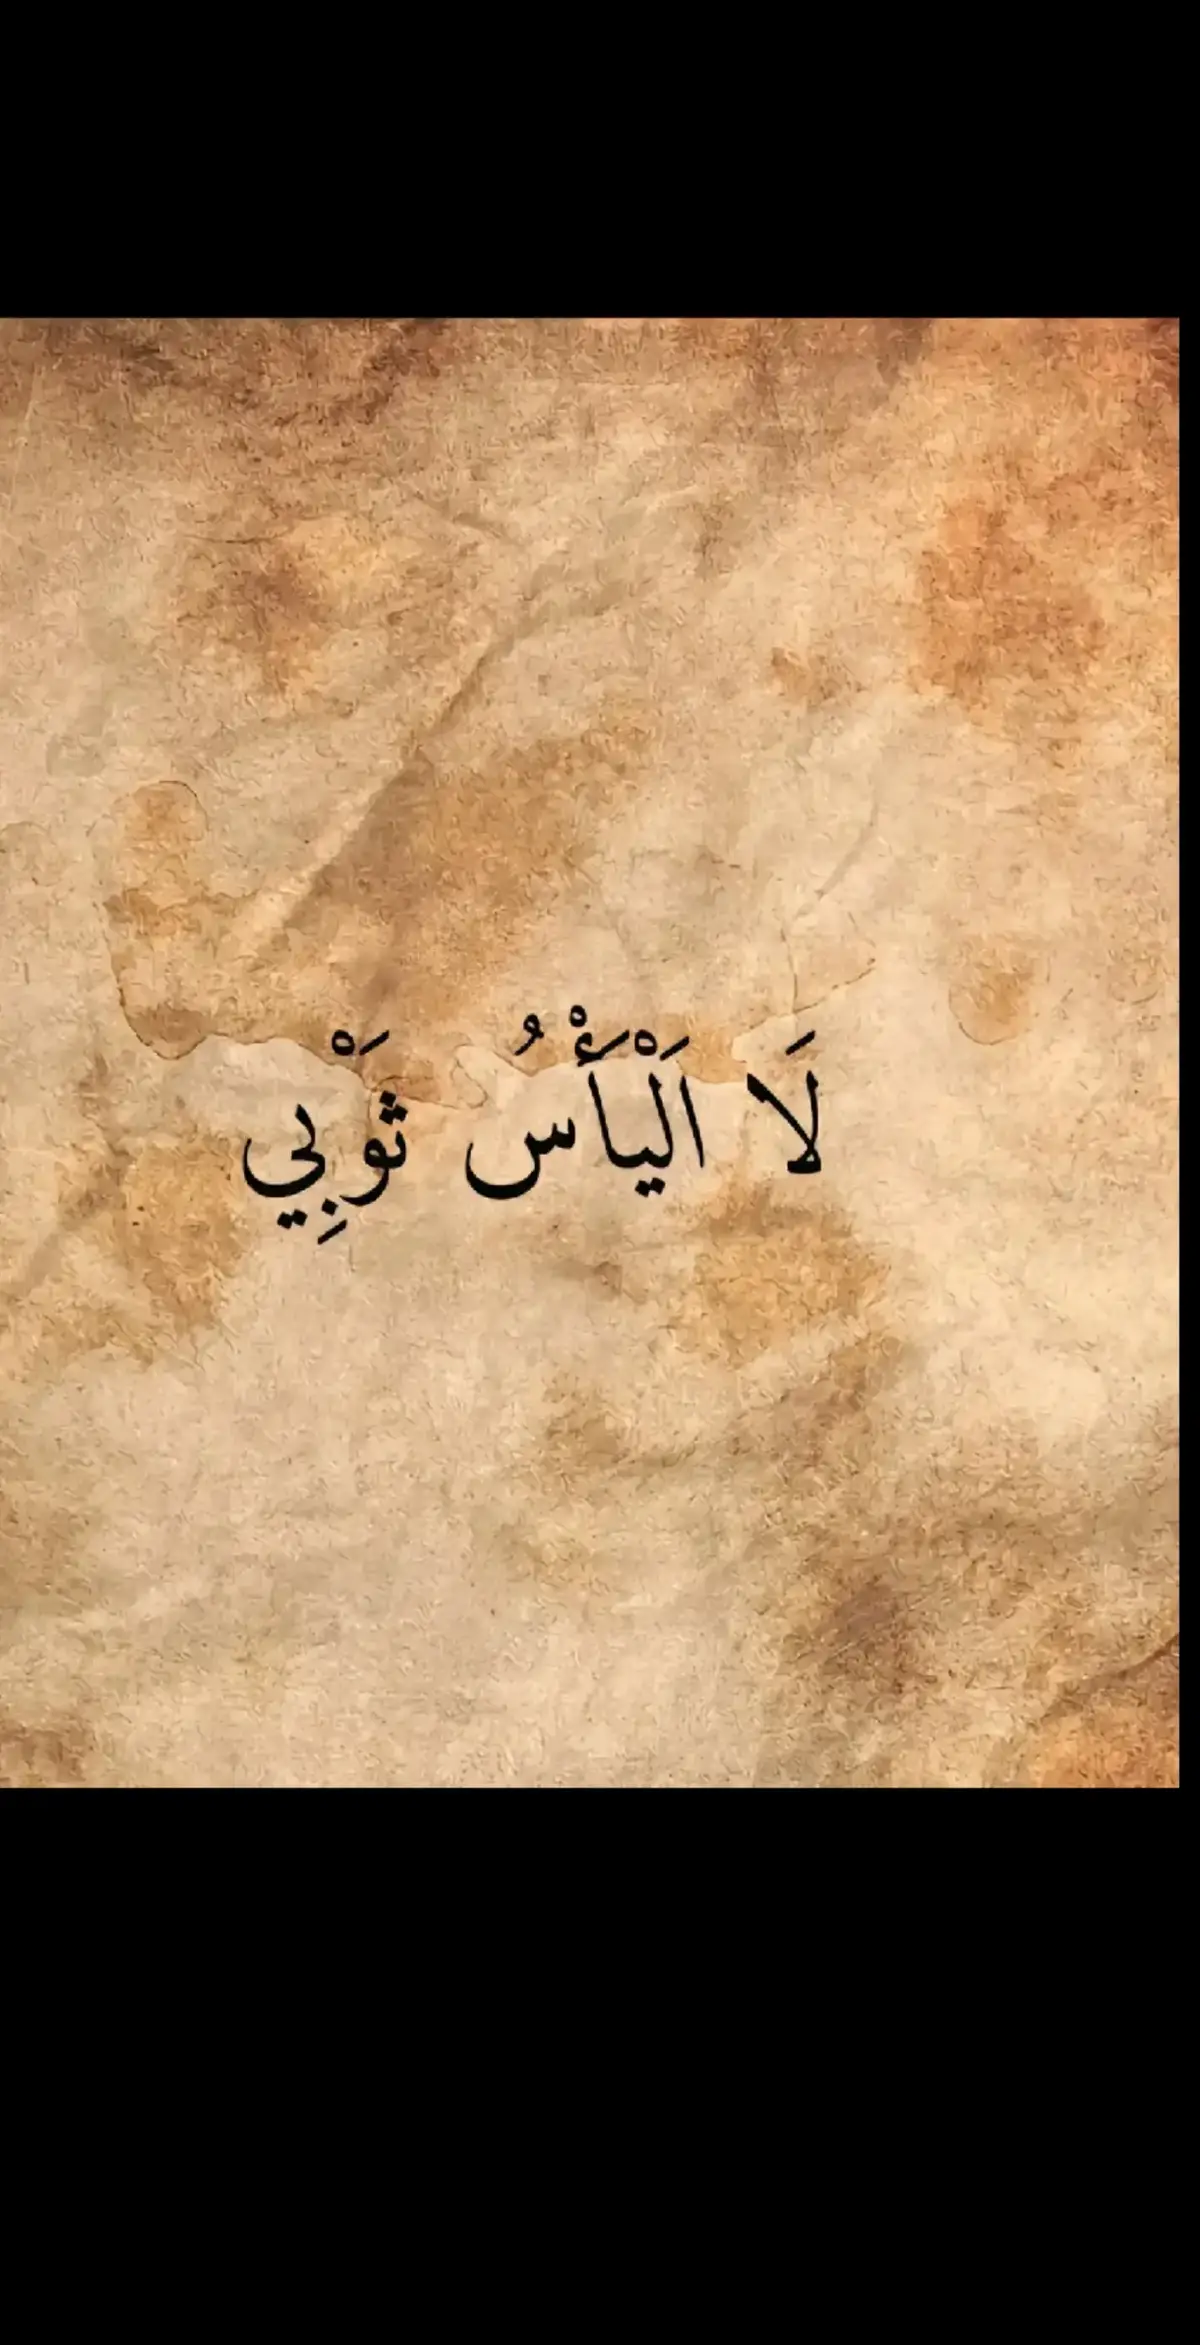 لَا اَلْيَأْسُ ثَوْبِي